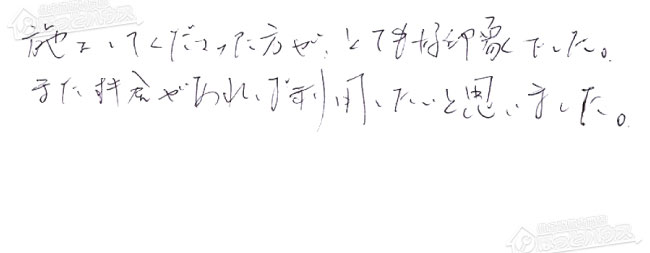 施工してくださった方が、とても好印象でした。
また機会があれば利用したいと思いました。